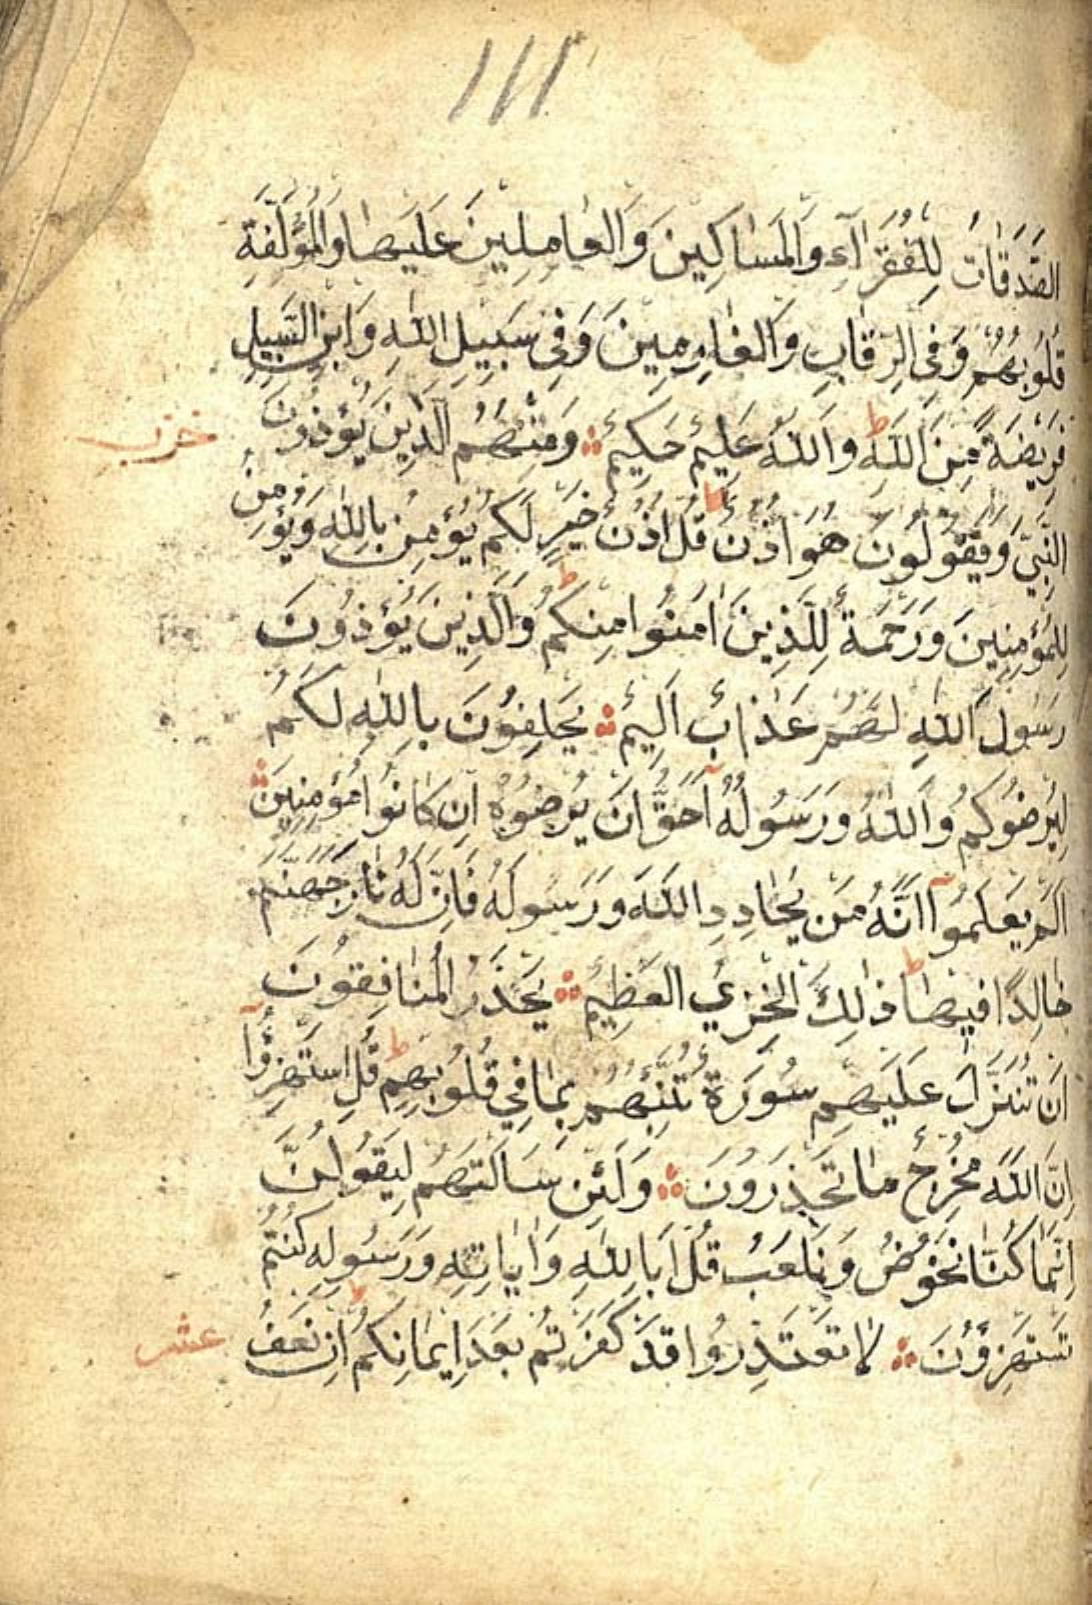 ١١١
الصَّدَقَاتُ لِلْفُقَرَآءِ وَالْمَسَاكِينَ وَالْعَامِلِينَ عَلَيْهَا وَالْمُؤَلَّفَةِ
قُلُوبُهُمْ وَفِي الرِّقَابِ وَالْغَارِمِينَ وَفِي سَبِيلِ اللّٰهِ وَابْنِ السَّبِيلِ
فَرِيضَةً مِنَ اللّٰهِ ط وَاللّٰهُ عَلِيمٌ حَكِيمٌ ۞ وَمِنْهُمُ الَّذِينَ يُؤْذُونَ
حزب
النَّبِيَّ وَيَقُولُونَ هُوَ اُذُنٌ ط قُلْ اُذُنُ خَيْرٍ لَكُمْ يُؤْمِنُ بِاللّٰهِ وَيُؤْمِنُ
لِلْمُؤْمِنِينَ وَرَحْمَةٌ لِلَّذِينَ اٰمَنُوا مِنْكُمْ ط وَالَّذِينَ يُؤْذُونَ
رَسُولَ اللّٰهِ لَهُمْ عَذَابٌ اَلِيمٌ ۞ يَحْلِفُونَ بِاللّٰهِ لَكُمْ
لِيُرْضُوكُمْ وَاللّٰهُ وَرَسُولُهُٓ اَحَقُّ اَنْ يُرْضُوهُ اِنْ كَانُوا مُؤْمِنِينَ ۞
اَلَمْ يَعْلَمُوٓا اَنَّهُ مَنْ يُحَادِدِ اللّٰهَ وَرَسُولَهُ فَاَنَّ لَهُ نَارَ جَهَنَّمَ
خَالِدًا فِيهَا ط ذٰلِكَ الْخِزْيُ الْعَظِيمُ ۞ يَحْذَرُ الْمُنَافِقُونَ
اَنْ تُنَزَّلَ عَلَيْهِمْ سُورَةٌ تُنَبِّئُهُمْ بِمَا فِي قُلُوبِهِمْ ط قُلِ اسْتَهْزِؤُٓا
اِنَّ اللّٰهَ مُخْرِجٌ مَا تَحْذَرُونَ ۞ وَلَئِنْ سَاَلْتَهُمْ لَيَقُولُنَّ
اِنَّمَا كُنَّا نَخُوضُ وَنَلْعَبُ قُلْ اَبِاللّٰهِ وَاٰيَاتِهِ وَرَسُولِهِ كُنْتُمْ
تَسْتَهْزِؤُنَ ۞ لَا تَعْتَذِرُوا قَدْ كَفَرْتُمْ بَعْدَ اِيمَانِكُمْ ط اِنْ نَعْفُ
عشر